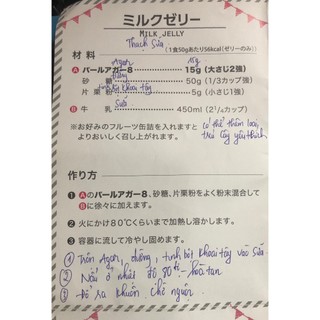 ミルクゼリー
MILK JELLY
Thạch Sữa
(1食50gあたり56kcal(ゼリーのみ))
材料
Agar 15g
Ⓐ パールアガー8 15g (大さじ2強)
đường
砂糖 50g (1/3カップ強)
tinh bột khoai tây
片栗粉 5g (小さじ1強)
Ⓑ 牛乳 450ml (2¼カップ)
Sữa
※お好みのフルーツ缶詰を入れますと
よりおいしく召し上がれます。
có thể thêm loại
trái cây yêu thích
作り方
❶ Ⓐのパールアガー8、砂糖、片栗粉をよく粉末混合して
Ⓑに徐々に加えます。
❷ 火にかけ80℃くらいまで加熱し溶かします。
❸ 容器に流して冷やし固めます。
① Trộn Agar, đường, tinh bột khoai tây vào sữa
② Nấu ở nhiệt độ 80° để hòa tan
③ Đổ ra khuôn chờ nguội